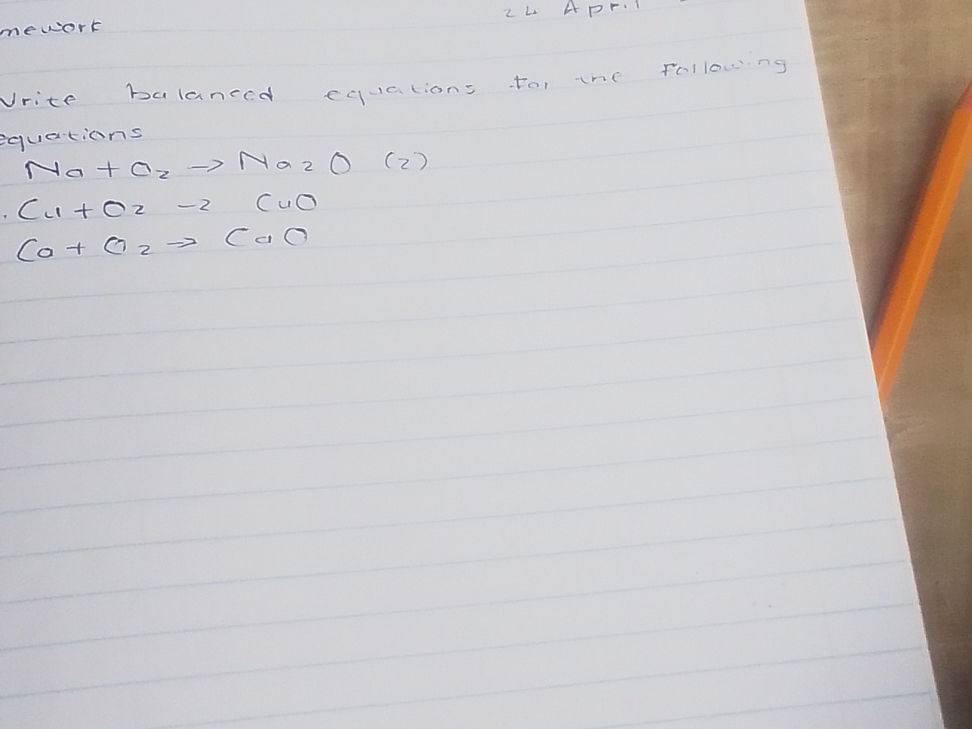 mework
24 April
Write balanced equations for the Following
equations
Na + O2 → Na2O (2)
. Cu + O2 → CuO
Ca + O2 → CaO